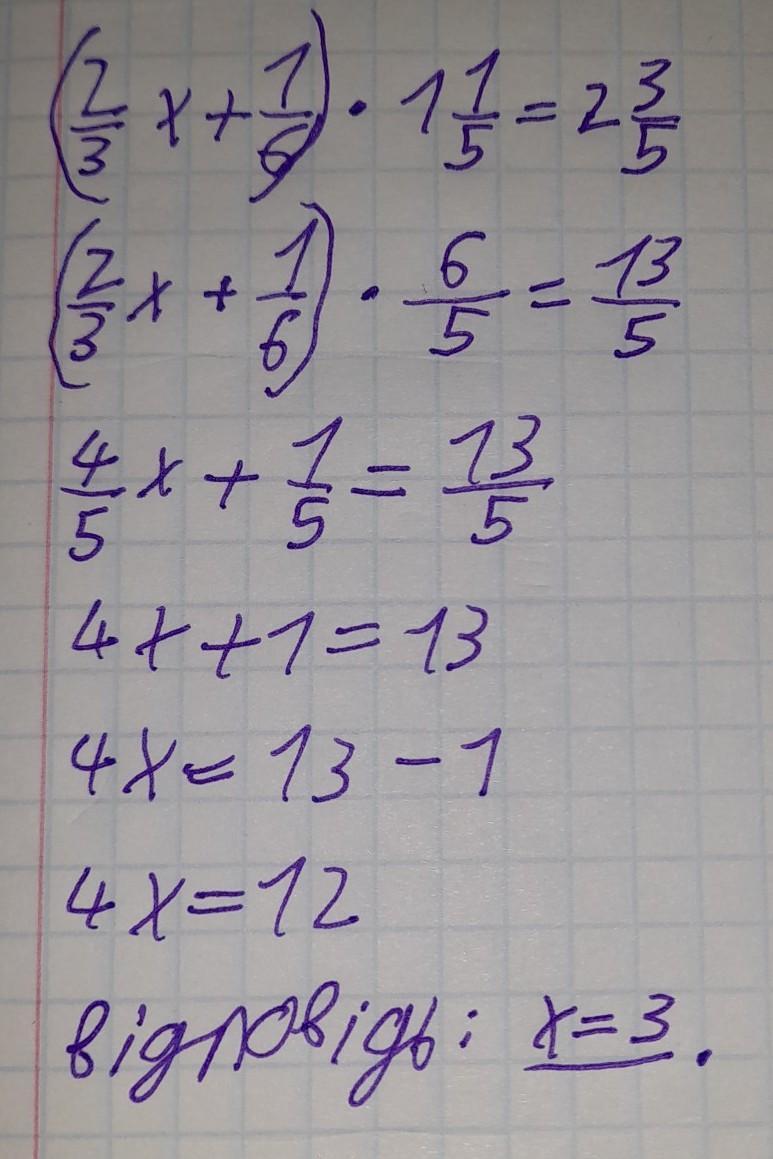 (2/3 x + 1/6) · 1 1/5 = 2 3/5
(2/3 x + 1/6) · 6/5 = 13/5
4/5 x + 1/5 = 13/5
4x + 1 = 13
4x = 13 - 1
4x = 12
відповідь: x = 3.